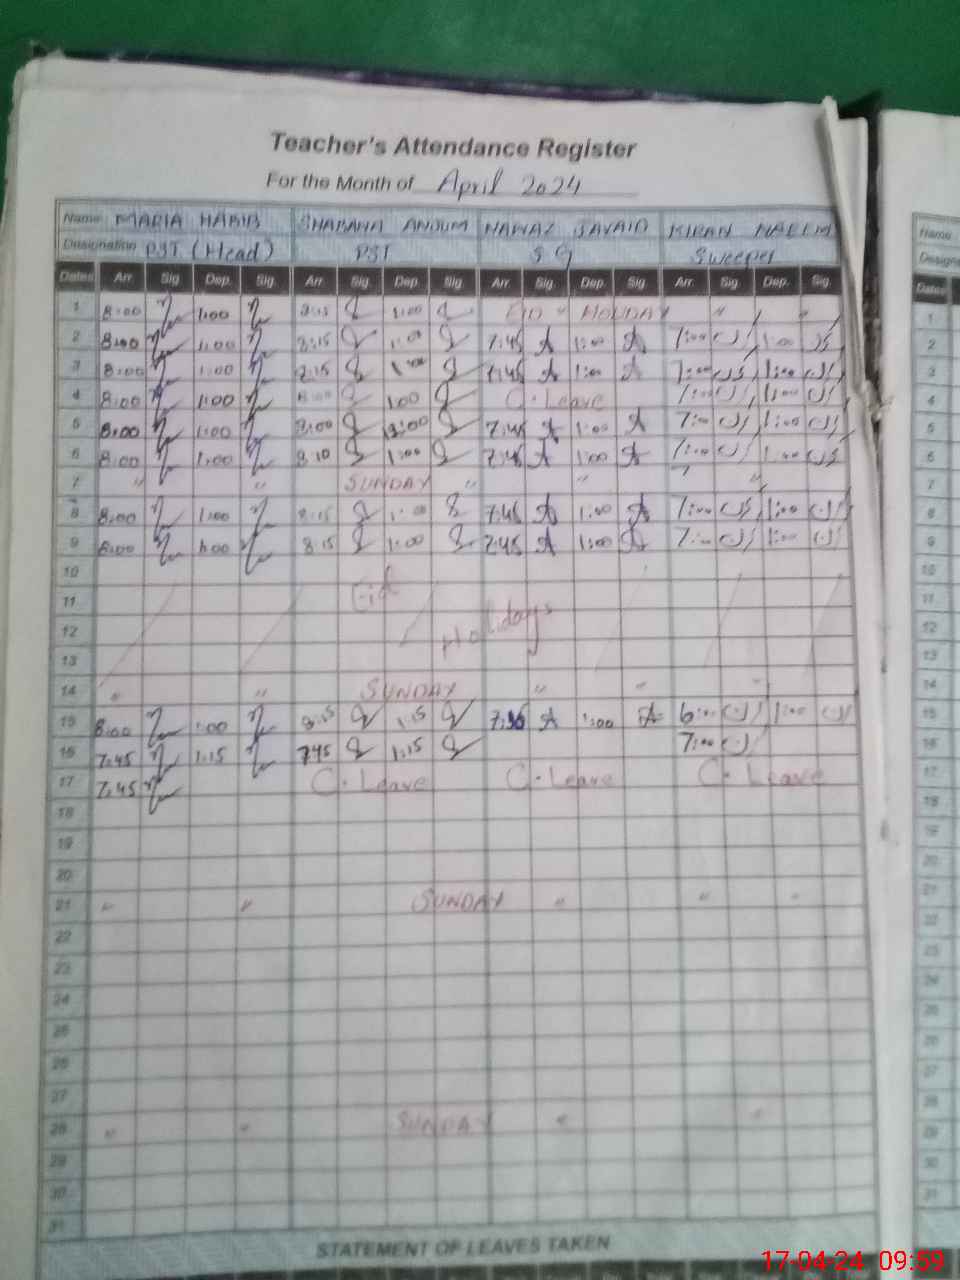 Teacher's Attendance Register
For the Month of April 2024
Name MARIA HABIB SHABANA ANJUM NAWAZ JAVAID KIRAN NAEEM
Designation PST (Head) PST S G Sweeper
Dates Arr. Sig. Dep. Sig. Arr. Sig. Dep. Sig. Arr. Sig. Dep. Sig. Arr. Sig. Dep. Sig.
1 8:00 1:00 8:15 1:00 EID " HOLIDAY " "
2 8:00 1:00 8:15 1:00 7:45 1:00 7:00 1:00
3 8:00 1:00 8:15 1:00 7:45 1:00 7:00 1:00
4 8:00 1:00 8:00 1:00 C. Leave 7:00 1:00
5 8:00 1:00 8:00 1:00 7:45 1:00 7:00 1:00
6 8:00 1:00 8:10 1:00 7:45 1:00 7:00 1:00
7 " " SUNDAY " " "
8 8:00 1:00 8:15 1:00 7:45 1:00 7:00 1:00
9 8:00 1:00 8:15 1:00 7:45 1:00 7:00 1:00
10
11 Eid
12 Holidays
13
14 " " SUNDAY " " "
15 8:00 1:00 8:15 1:15 1:00 6:00 1:00
16 7:45 1:15 7:45 1:15 7:00
17 7:45 C. Leave C. Leave C. Leave
18
19
20
21 " " SUNDAY " " "
22
23
24
25
26
27
28 " " SUNDAY " "
29
30
31
STATEMENT OF LEAVES TAKEN
Name
Dates
1
2
3
4
5
6
7
8
9
10
11
12
13
14
15
16
17
18
19
20
21
22
23
24
25
26
27
28
29
30
31
17-04-24 09:59